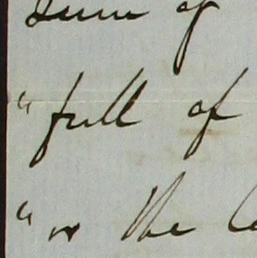 sum of
"full of
"or the